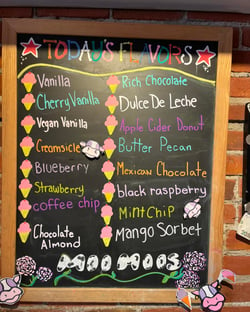 TODAY'S FLAVORS
Vanilla
Cherry Vanilla
Vegan Vanilla
Creamsicle
Blueberry
Strawberry
coffee chip
Chocolate
Almond
Rich Chocolate
Dulce De Leche
Apple Cider Donut
Butter Pecan
Mexican Chocolate
black raspberry
Mint Chip
Mango Sorbet
MOO MOOS